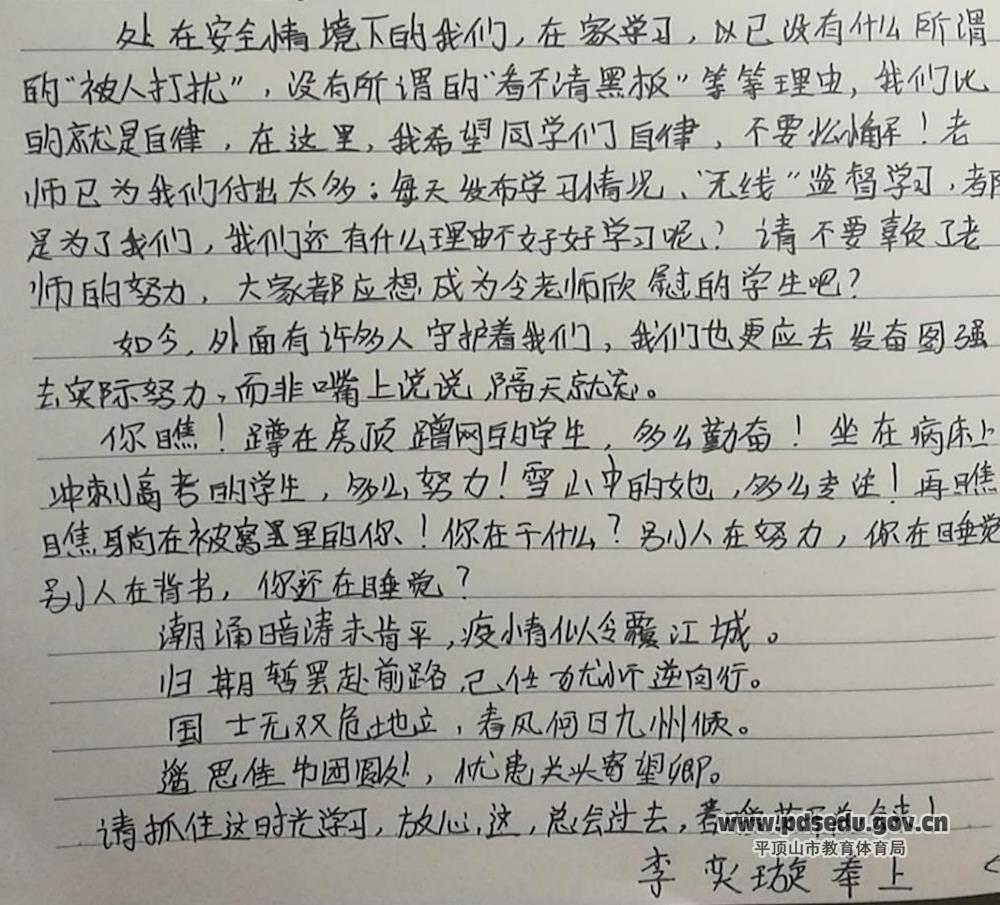 处在安全情境下的我们，在家学习，以已没有什么所谓
的“被人打扰”，没有所谓的“看不清黑板”等等理由，我们比
的就是自律，在这里，我希望同学们自律，不要松懈！老
师已为我们付出太多：每天发布学习情况、“无线”监督学习，都
是为了我们，我们还有什么理由不好好学习呢？请不要辜负了老
师的努力，大家都应想成为令老师欣慰的学生吧？
如今，外面有许多人守护着我们，我们也更应去发奋图强
去实际努力，而非嘴上说说，隔天就忘。
你瞧！蹲在房顶蹭网的学生，多么勤奋！坐在病床上
冲刺高考的学生，多么努力！雪山中的她，多么专注！再瞧
瞧躺在被窝里的你！你在干什么？别人在努力，你在睡觉
别人在背书，你还在睡觉？
潮涌暗涛未肯平，疫情似令覆江城。
归期暂罢赴前路，己任力抗逆向行。
国士无双危地立，春风何日九州倾。
遥思佳节团圆处，忧患关头寄望卿。
请抓住这时光学习，放心，这，总会过去，
www.pdsedu.gov.cn
平顶山市教育体育局
李奕璇奉上